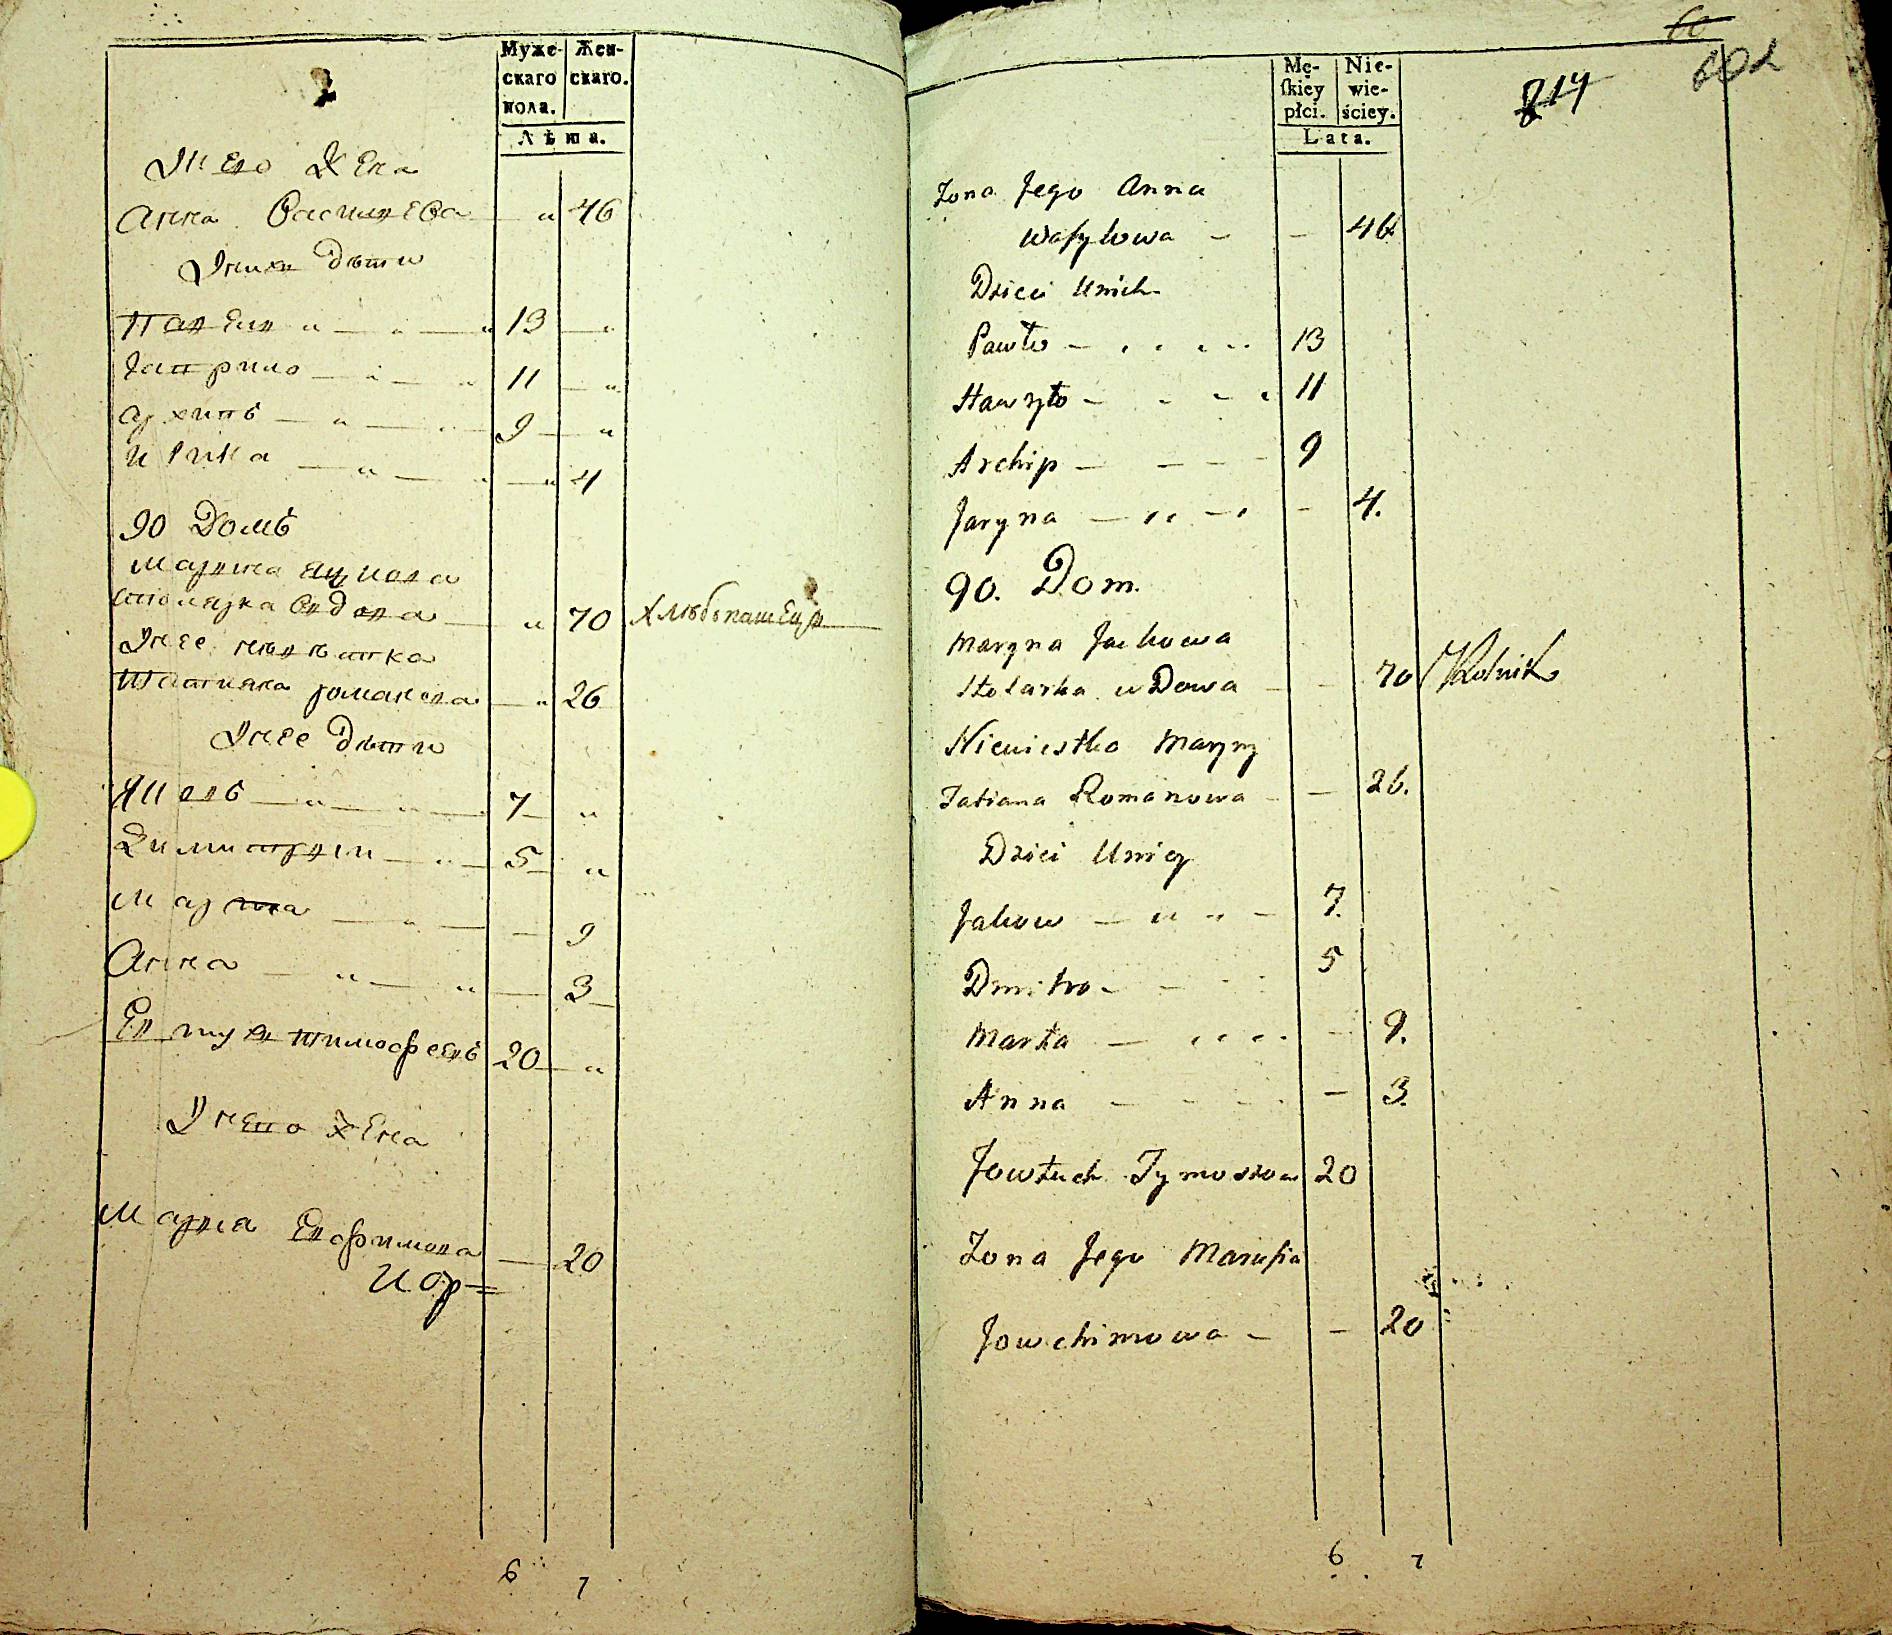 Муже- Жен-
скаго скаго.
пола.
Лѣта.
Унего Жена
Анна Василиева 46
Уних дѣти
Павелъ 13
Гаврило 11
Архипъ 9
Ирина 4
90 Домъ
Марина Яцкова
столярка вдова 70 Хлѣбопашецъ
Унее невѣстка
Татияна романова 26
Унее дѣти
Яковъ 7
Димитрий 5
Марта 9
Анна 3
Евтух тимофеевъ 20
Унего Жена
Мария Ефимова 20
6 7
60
214
Mę- Nie-
ſkiey wie-
płci. ściey.
Lata.
Żona Jego Anna
Wasylowa 46
Dzieci Unich
Pawło 13
Hawryło 11
Archip 9
Jaryna 4.
90. Dom.
Maryna Jackowa
Stolarka wdowa 70 Rolnik
Niewiestka Maryny
Tatiana Romanowa 26.
Dzieci Uniey
Jakow 7.
Dmitro 5
Marta 9.
Anna 3.
Jowtuch Tymosiow 20
Żona Jego Marusia
Jowchimowa 20
6 7